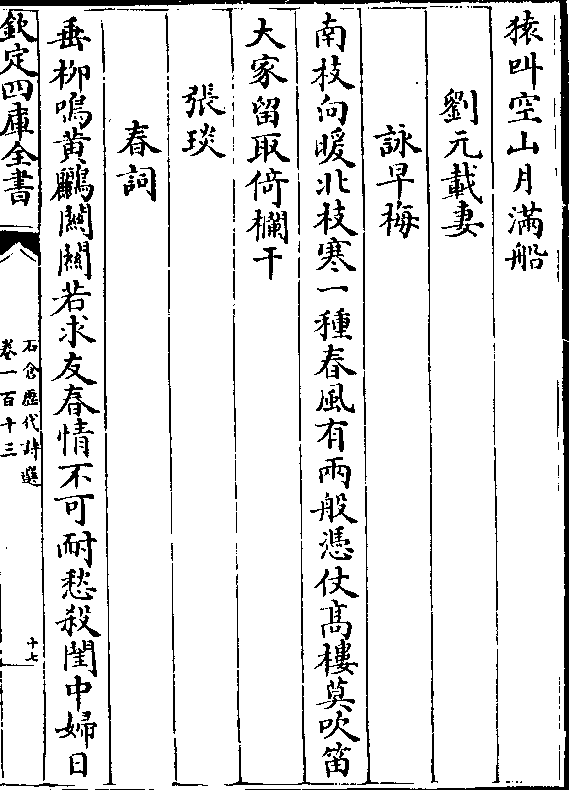 猿叫空山月滿船
劉元載妻
詠早梅
南枝向暖北枝寒一種春風有兩般憑仗髙樓莫吹笛
大家留取倚欄干
張琰
春詞
垂柳鳴黄鸝關關若求友春情不可耐愁殺閨中婦日
欽定四庫全書
石倉歷代詩選
卷一百十三
十七